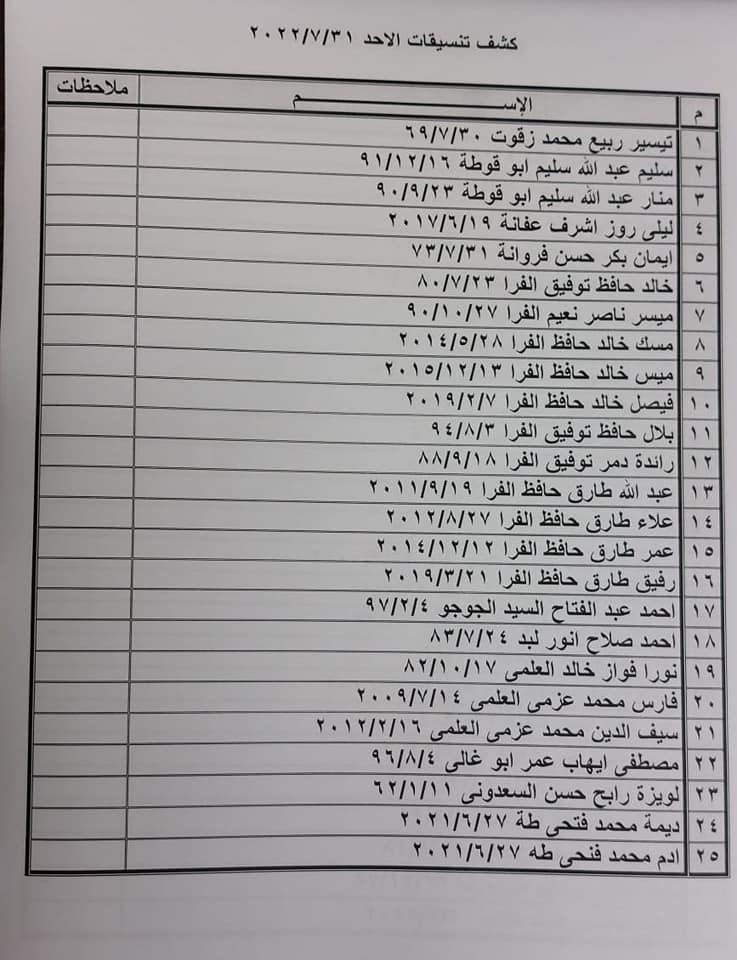 كشف تنسيقات الاحد ٢٠٢٢/٧/٣١
م الإســـــــــــــــــم ملاحظات
١ تيسير ربيع محمد زقوت ٦٩/٧/٣٠
٢ سليم عبد الله سليم ابو قوطة ٩١/١٢/١٦
٣ منار عبد الله سليم ابو قوطة ٩٠/٩/٢٣
٤ ليلى روز اشرف عفانة ٢٠١٧/٦/١٩
٥ ايمان بكر حسن فروانة ٧٣/٧/٣١
٦ خالد حافظ توفيق الفرا ٨٠/٧/٢٣
٧ ميسر ناصر نعيم الفرا ٩٠/١٠/٢٧
٨ مسك خالد حافظ الفرا ٢٠١٤/٥/٢٨
٩ ميس خالد حافظ الفرا ٢٠١٥/١٢/١٣
١٠ فيصل خالد حافظ الفرا ٢٠١٩/٢/٧
١١ بلال حافظ توفيق الفرا ٩٤/٨/٣
١٢ رائدة دمر توفيق الفرا ٨٨/٩/١٨
١٣ عبد الله طارق حافظ الفرا ٢٠١١/٩/١٩
١٤ علاء طارق حافظ الفرا ٢٠١٢/٨/٢٧
١٥ عمر طارق حافظ الفرا ٢٠١٤/١٢/١٢
١٦ رفيق طارق حافظ الفرا ٢٠١٩/٣/٢١
١٧ احمد عبد الفتاح السيد الجوجو ٩٧/٢/٤
١٨ احمد صلاح انور لبد ٨٣/٧/٢٤
١٩ نورا فواز خالد العلمى ٨٢/١٠/١٧
٢٠ فارس محمد عزمى العلمى ٢٠٠٩/٧/١٤
٢١ سيف الدين محمد عزمى العلمى ٢٠١٢/٢/١٦
٢٢ مصطفى ايهاب عمر ابو غالى ٩٦/٨/٤
٢٣ لويزة رابح حسن السعدونى ٦٢/١/١١
٢٤ ديمة محمد فتحى طة ٢٠٢١/٦/٢٧
٢٥ ادم محمد فتحى طه ٢٠٢١/٦/٢٧